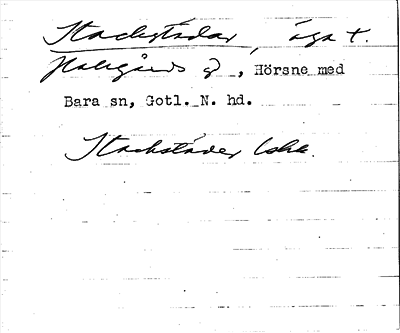 Stackstädar, äga t.
Hallgårds g, Hörsne med
Bara sn, Gotl. N. hd.
Stackstäder